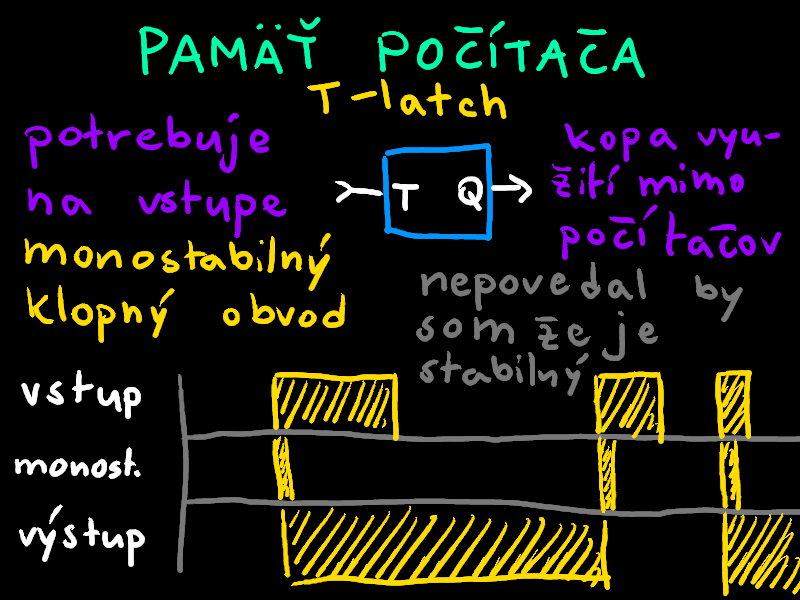 PAMÄŤ POČÍTAČA
T-latch
potrebuje
na vstupe
monostabilný
klopný obvod
T Q
kopa vyu-
žití mimo
počítačov
nepovedal by
som že je
stabilný
vstup
monost.
výstup